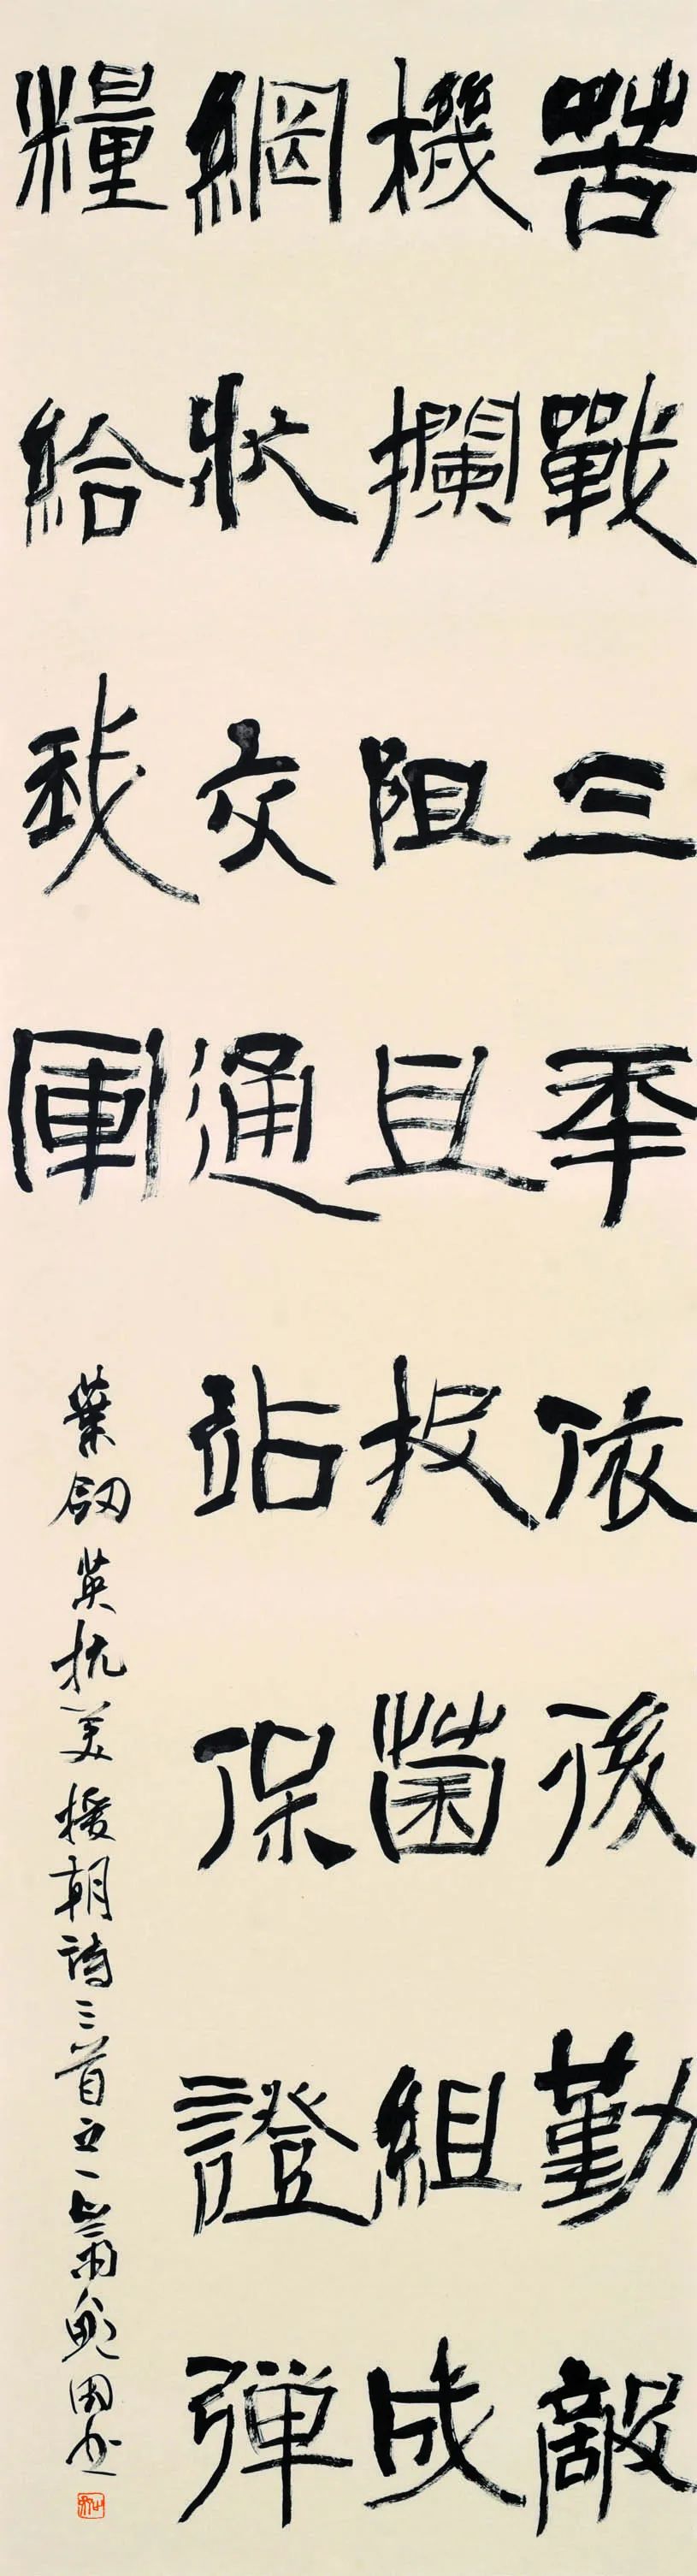 苦戰三年依後勤敵
機攔阻且投菌組成
網狀交通站保證彈
糧給我軍
葉劍英抗美援朝詩三首之一